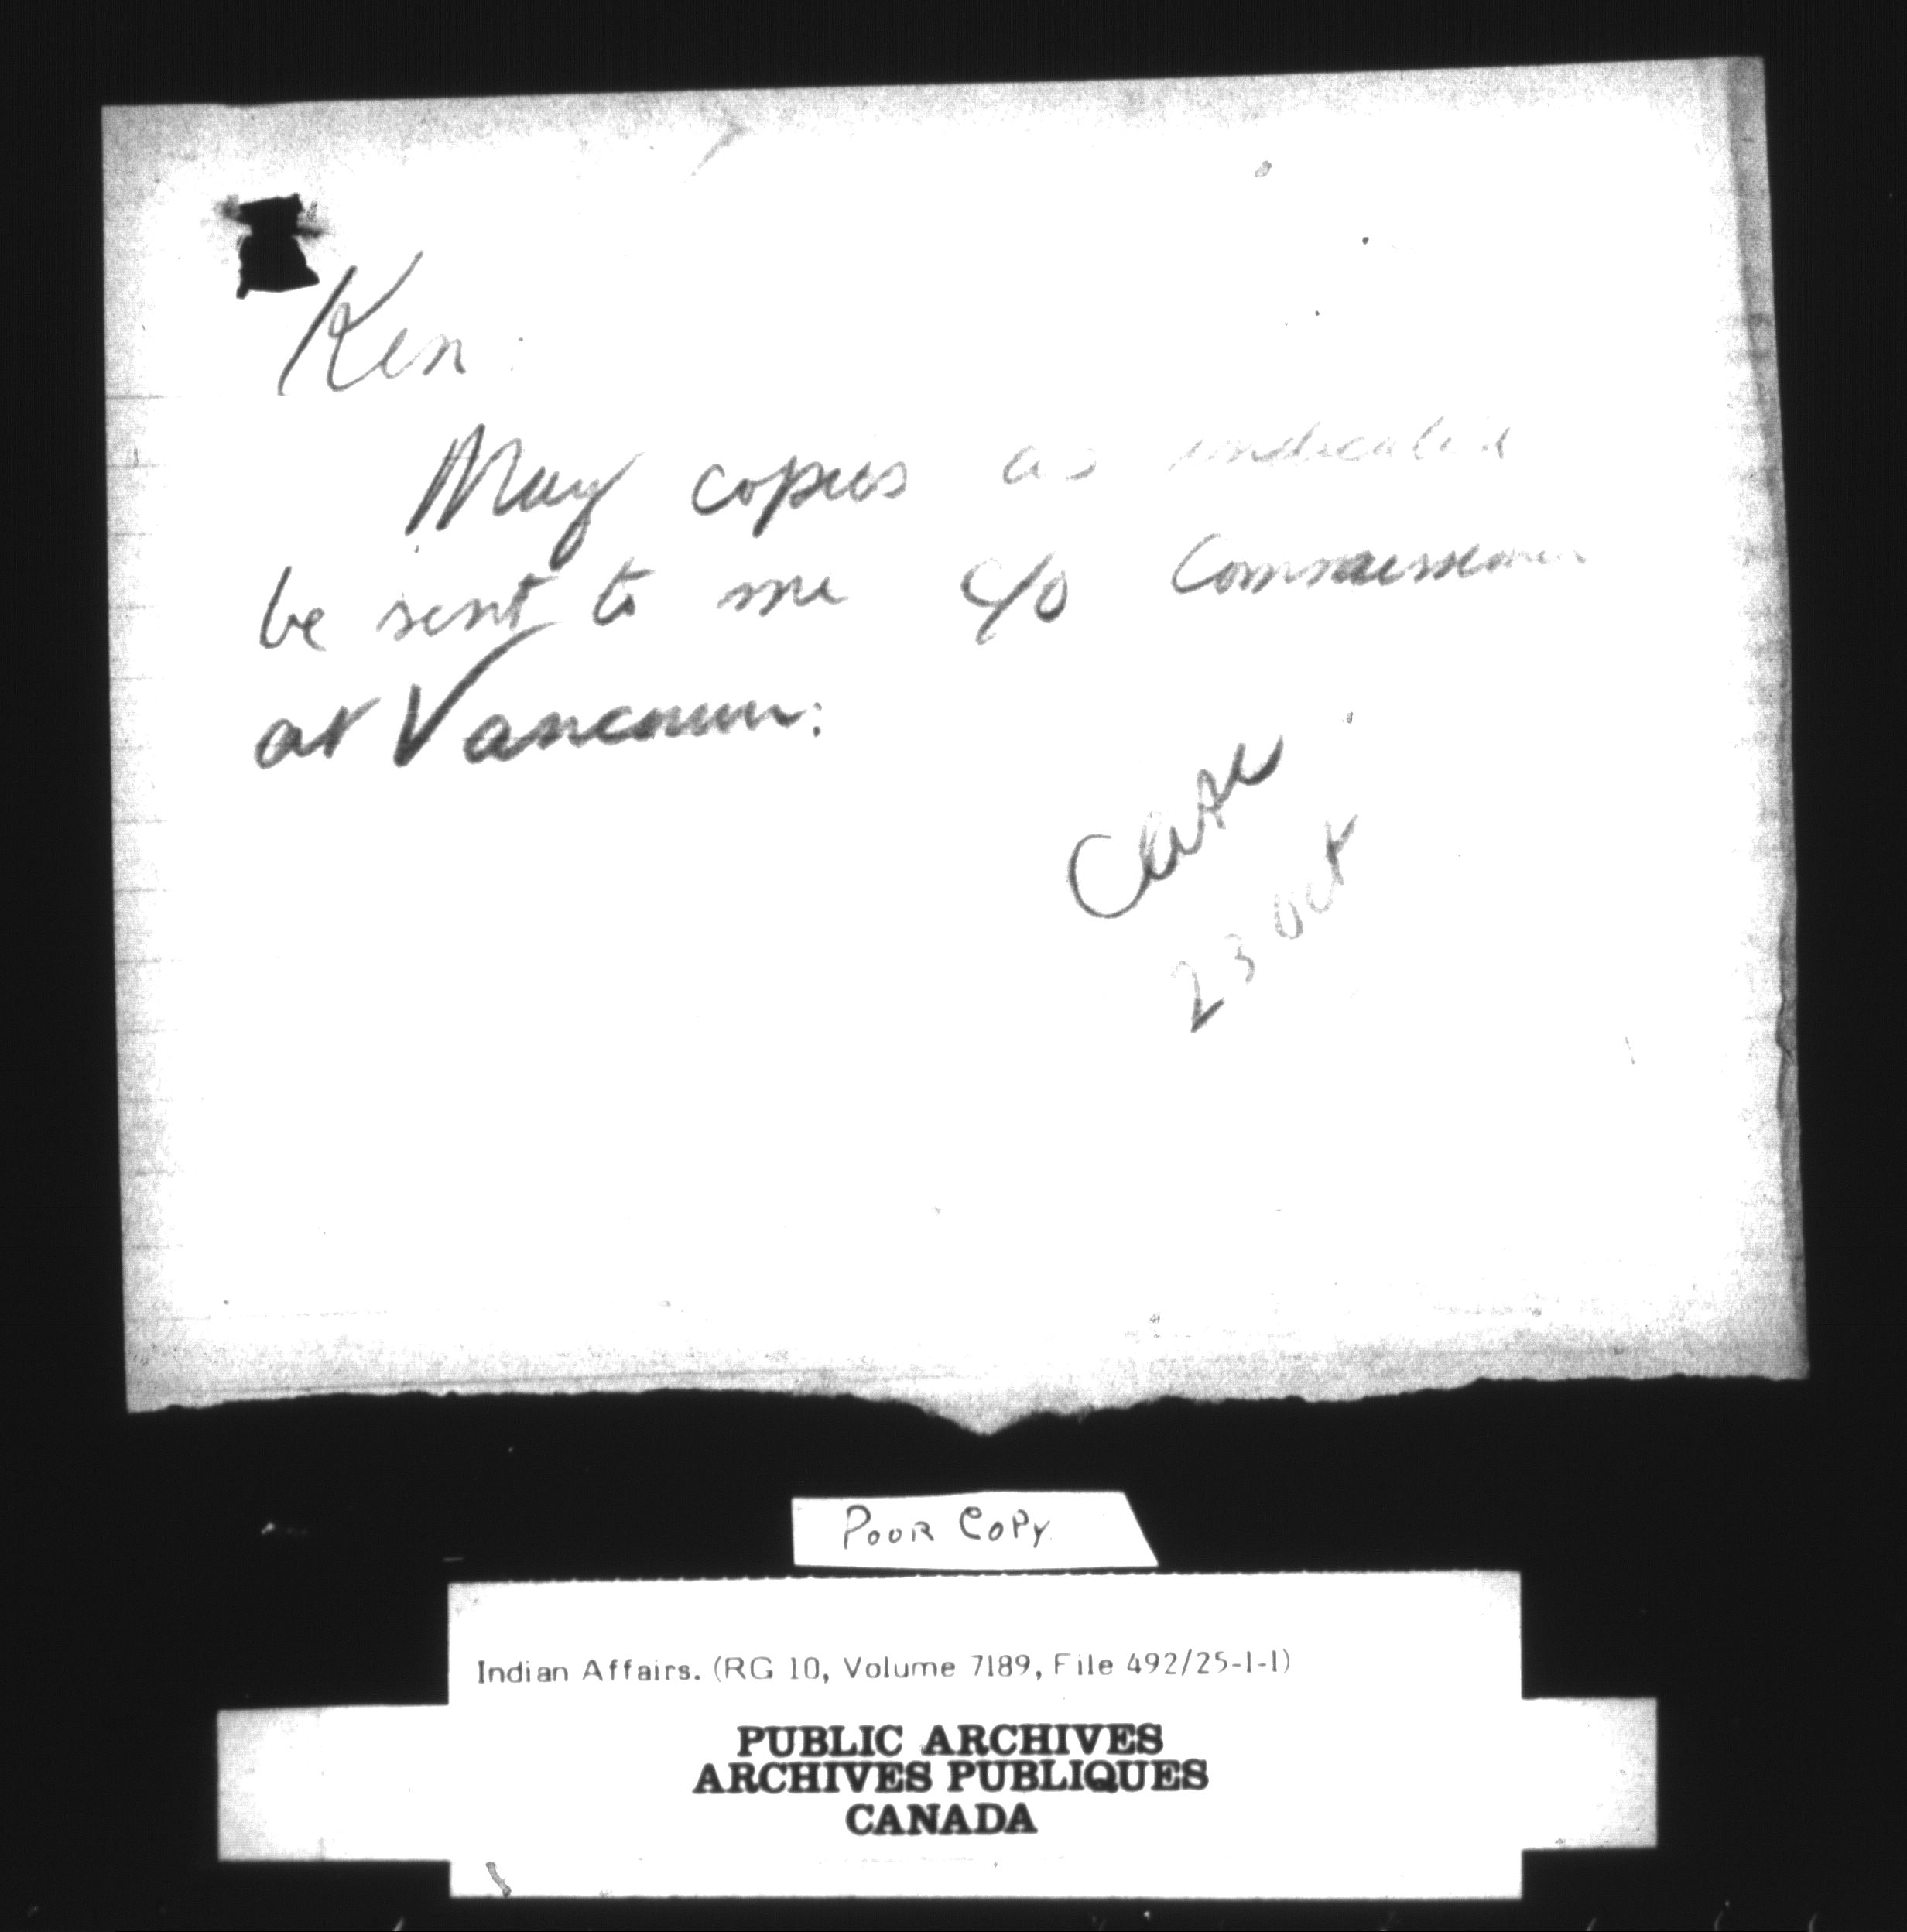 Ken:
May copies as indicated
be sent to me c/o Commissioner
at Vancouver:
23 Oct
POOR COPY
Indian Affairs. (RG 10, Volume 7189, File 492/25-1-1)
PUBLIC ARCHIVES
ARCHIVES PUBLIQUES
CANADA